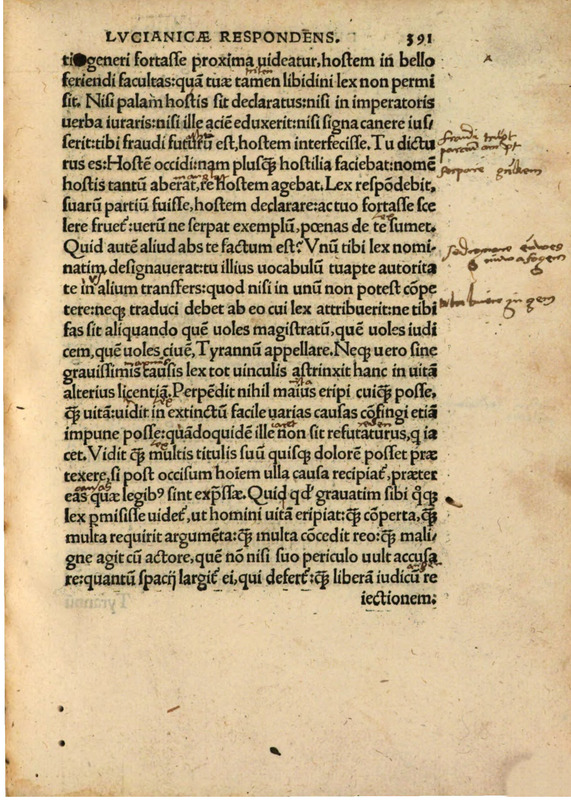 LVCIANICÆ RESPONDENS. 391
generi fortasse proxima uideatur, hostem in bello
feriendi facultas: quã tuæ tamen libidini lex non permi
sit. Nisi palam hostis sit declaratus: nisi in imperatoris
uerba iuraris: nisi ille aciẽ eduxerit: nisi signa canere ius-
serit: tibi fraudi futurũ est, hostem interfecisse. Tu dictu
rus es: Hostẽ occidi: nam plusq̃ hostilia faciebat: nomẽ
hostis tantũ aberat, re hostem agebat. Lex respõdebit,
suarũ partiũ fuisse, hostem declarare: ac tuo fortasse sce
lere fruet᷑: uerũ ne serpat exemplũ, pœnas de te sumet.
Quid autẽ aliud abs te factum est? Vnũ tibi lex nomi-
natim designauerat: tu illius uocabulũ tuapte autorita
te in alium transfers: quod nisi in unũ non potest cõpe
tere: neq; traduci debet ab eo cui lex attribuerit: ne tibi
fas sit aliquando quẽ uoles magistratũ, quẽ uoles iudi
cem, quẽ uoles ciuẽ, Tyrannũ appellare. Neq; uero sine
grauissimis causis lex tot uinculis astrinxit hanc in uitã
alterius licentiã. Perpẽdit nihil maius eripi cuiq; posse,
q̃ uitã: uidit in extinctũ facile uarias causas cõfingi etiã
impune posse: quãdoquidẽ ille non sit refutaturus, q ia
cet. Vidit q̃ multis titulis suũ quisq; dolorẽ posset præ
texere, si post occisum hoiem ulla causa recipiat᷑, præter
eas quæ legibꝰ sint exp̃ssæ. Quid qd' grauatim sibi q̃q;
lex pmisisse uidet᷑, ut homini uitã eripiat: q̃ cõperta, q̃
multa requirit argumẽta: q̃ multa cõcedit reo: q̃ mali-
gne agit cũ actore, quẽ nõ nisi suo periculo uult accusa
re: quantũ spacij largit᷑ ei, qui defert᷑: q̃ liberã iudicũ re
iectionem: